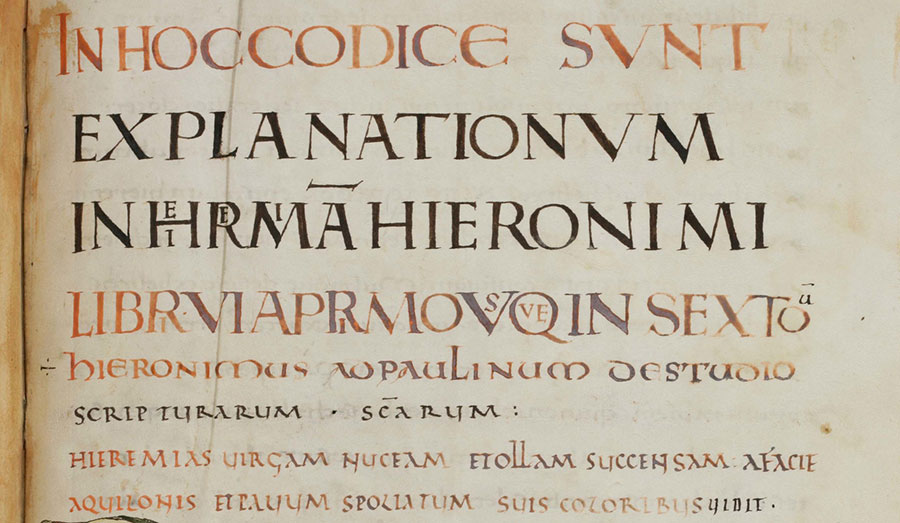 IN HOC CODICE SVNT
EXPLANATIONVM
IN HIEREMIĀ HIERONIMI
LIBRI VI A PRIMO VSQVE IN SEXTOū
÷ hIERONIMUS AD PAULINUM DE STUDIO
SCRIPTURARUM · SC̄ARUM :
HIEREMIAS UIRGAM NUCEAM ET OLLAM SUCCENSAM A FACIE
AQUILONIS ET PAUUM SPOLIATUM SUIS COLORIBUS UIDIT ·